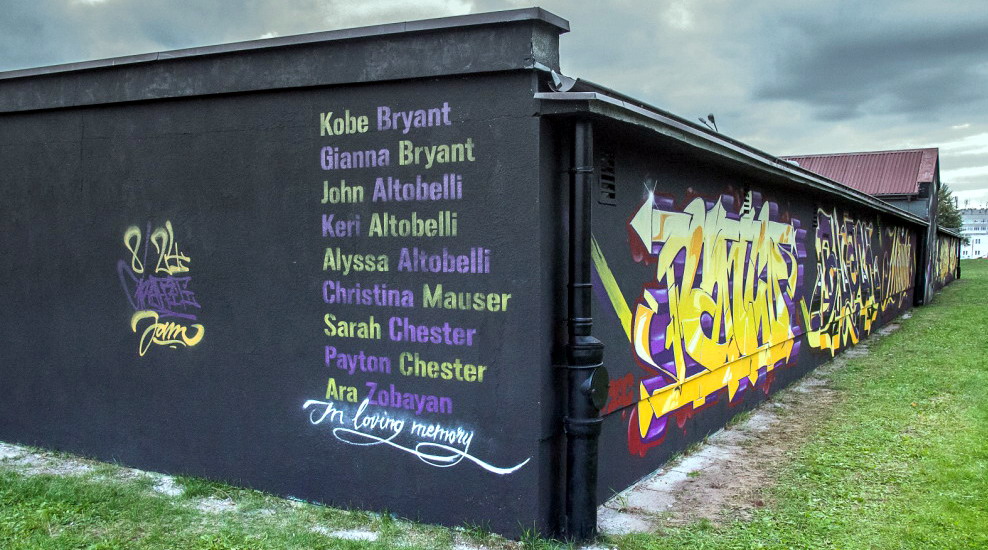 Kobe Bryant
Gianna Bryant
John Altobelli
Keri Altobelli
Alyssa Altobelli
Christina Mauser
Sarah Chester
Payton Chester
Ara Zobayan
In loving memory
8/24
KOBE
Jam